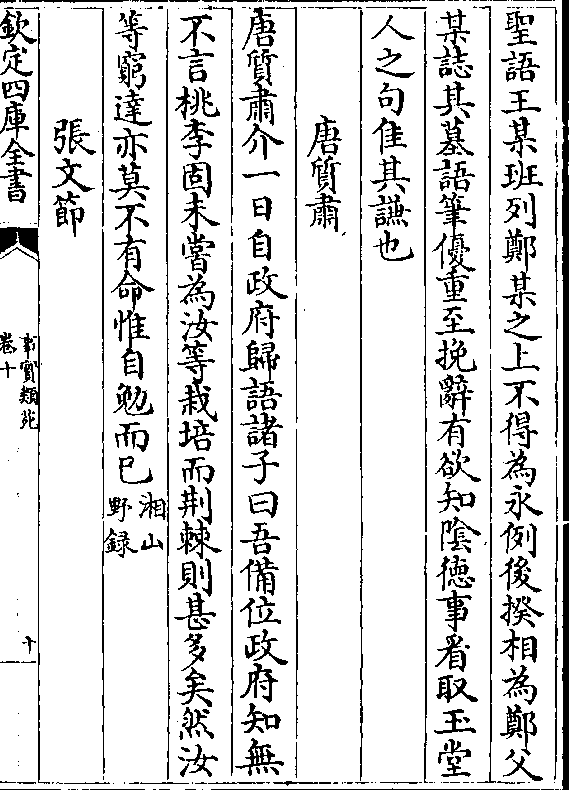 聖語王某班列鄭某之上不得為永例後揆相為鄭父
某誌其墓語筆優重至挽辭有欲知陰徳事看取玉堂
人之句隹其謙也
唐質肅
唐質肅介一日自政府歸語諸子曰吾備位政府知無
不言桃李固未嘗為汝等栽培而荆棘則甚多矣然汝
等窮達亦莫不有命惟自勉而已湘山
野録
張文節
欽定四庫全書
事實類苑
卷十
十